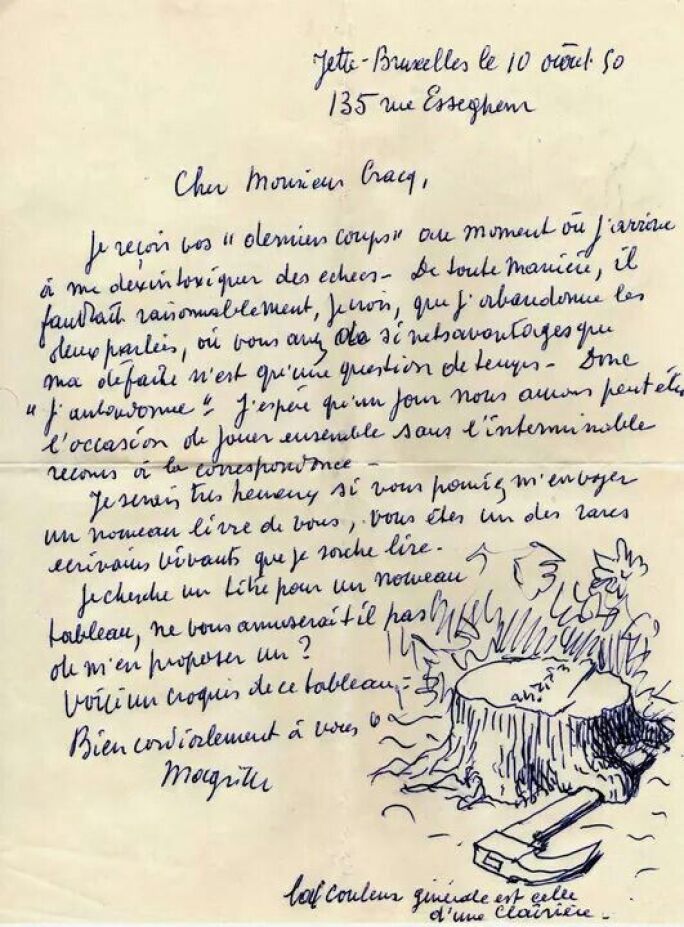 Jette-Bruxelles le 10 août 50
135 rue Esseghem
Cher Monsieur Gracq,
Je reçois vos "derniers coups" au moment où j'arrive
à me désintoxiquer des echecs - De toute manière, il
faudrait raisonnablement, je crois, que j'abandonne les
deux parties, où vous avez de si nets avantages que
ma défaite n'est qu'une question de temps - Donc
"j'abandonne" - J'espère qu'un jour nous aurons peut être
l'occasion de jouer ensemble sans l'interminable
recours à la correspondance -
Je serais très heureux si vous pouviez m'envoyer
un nouveau livre de vous, vous êtes un des rares
ecrivains vivants que je sache lire -
Je cherche un titre pour un nouveau
tableau, ne vous amuserait il pas
de m'en proposer un ?
Voici un croquis de ce tableau, -
Bien cordialement à vous
Magritte
la couleur générale est celle
d'une clairière -